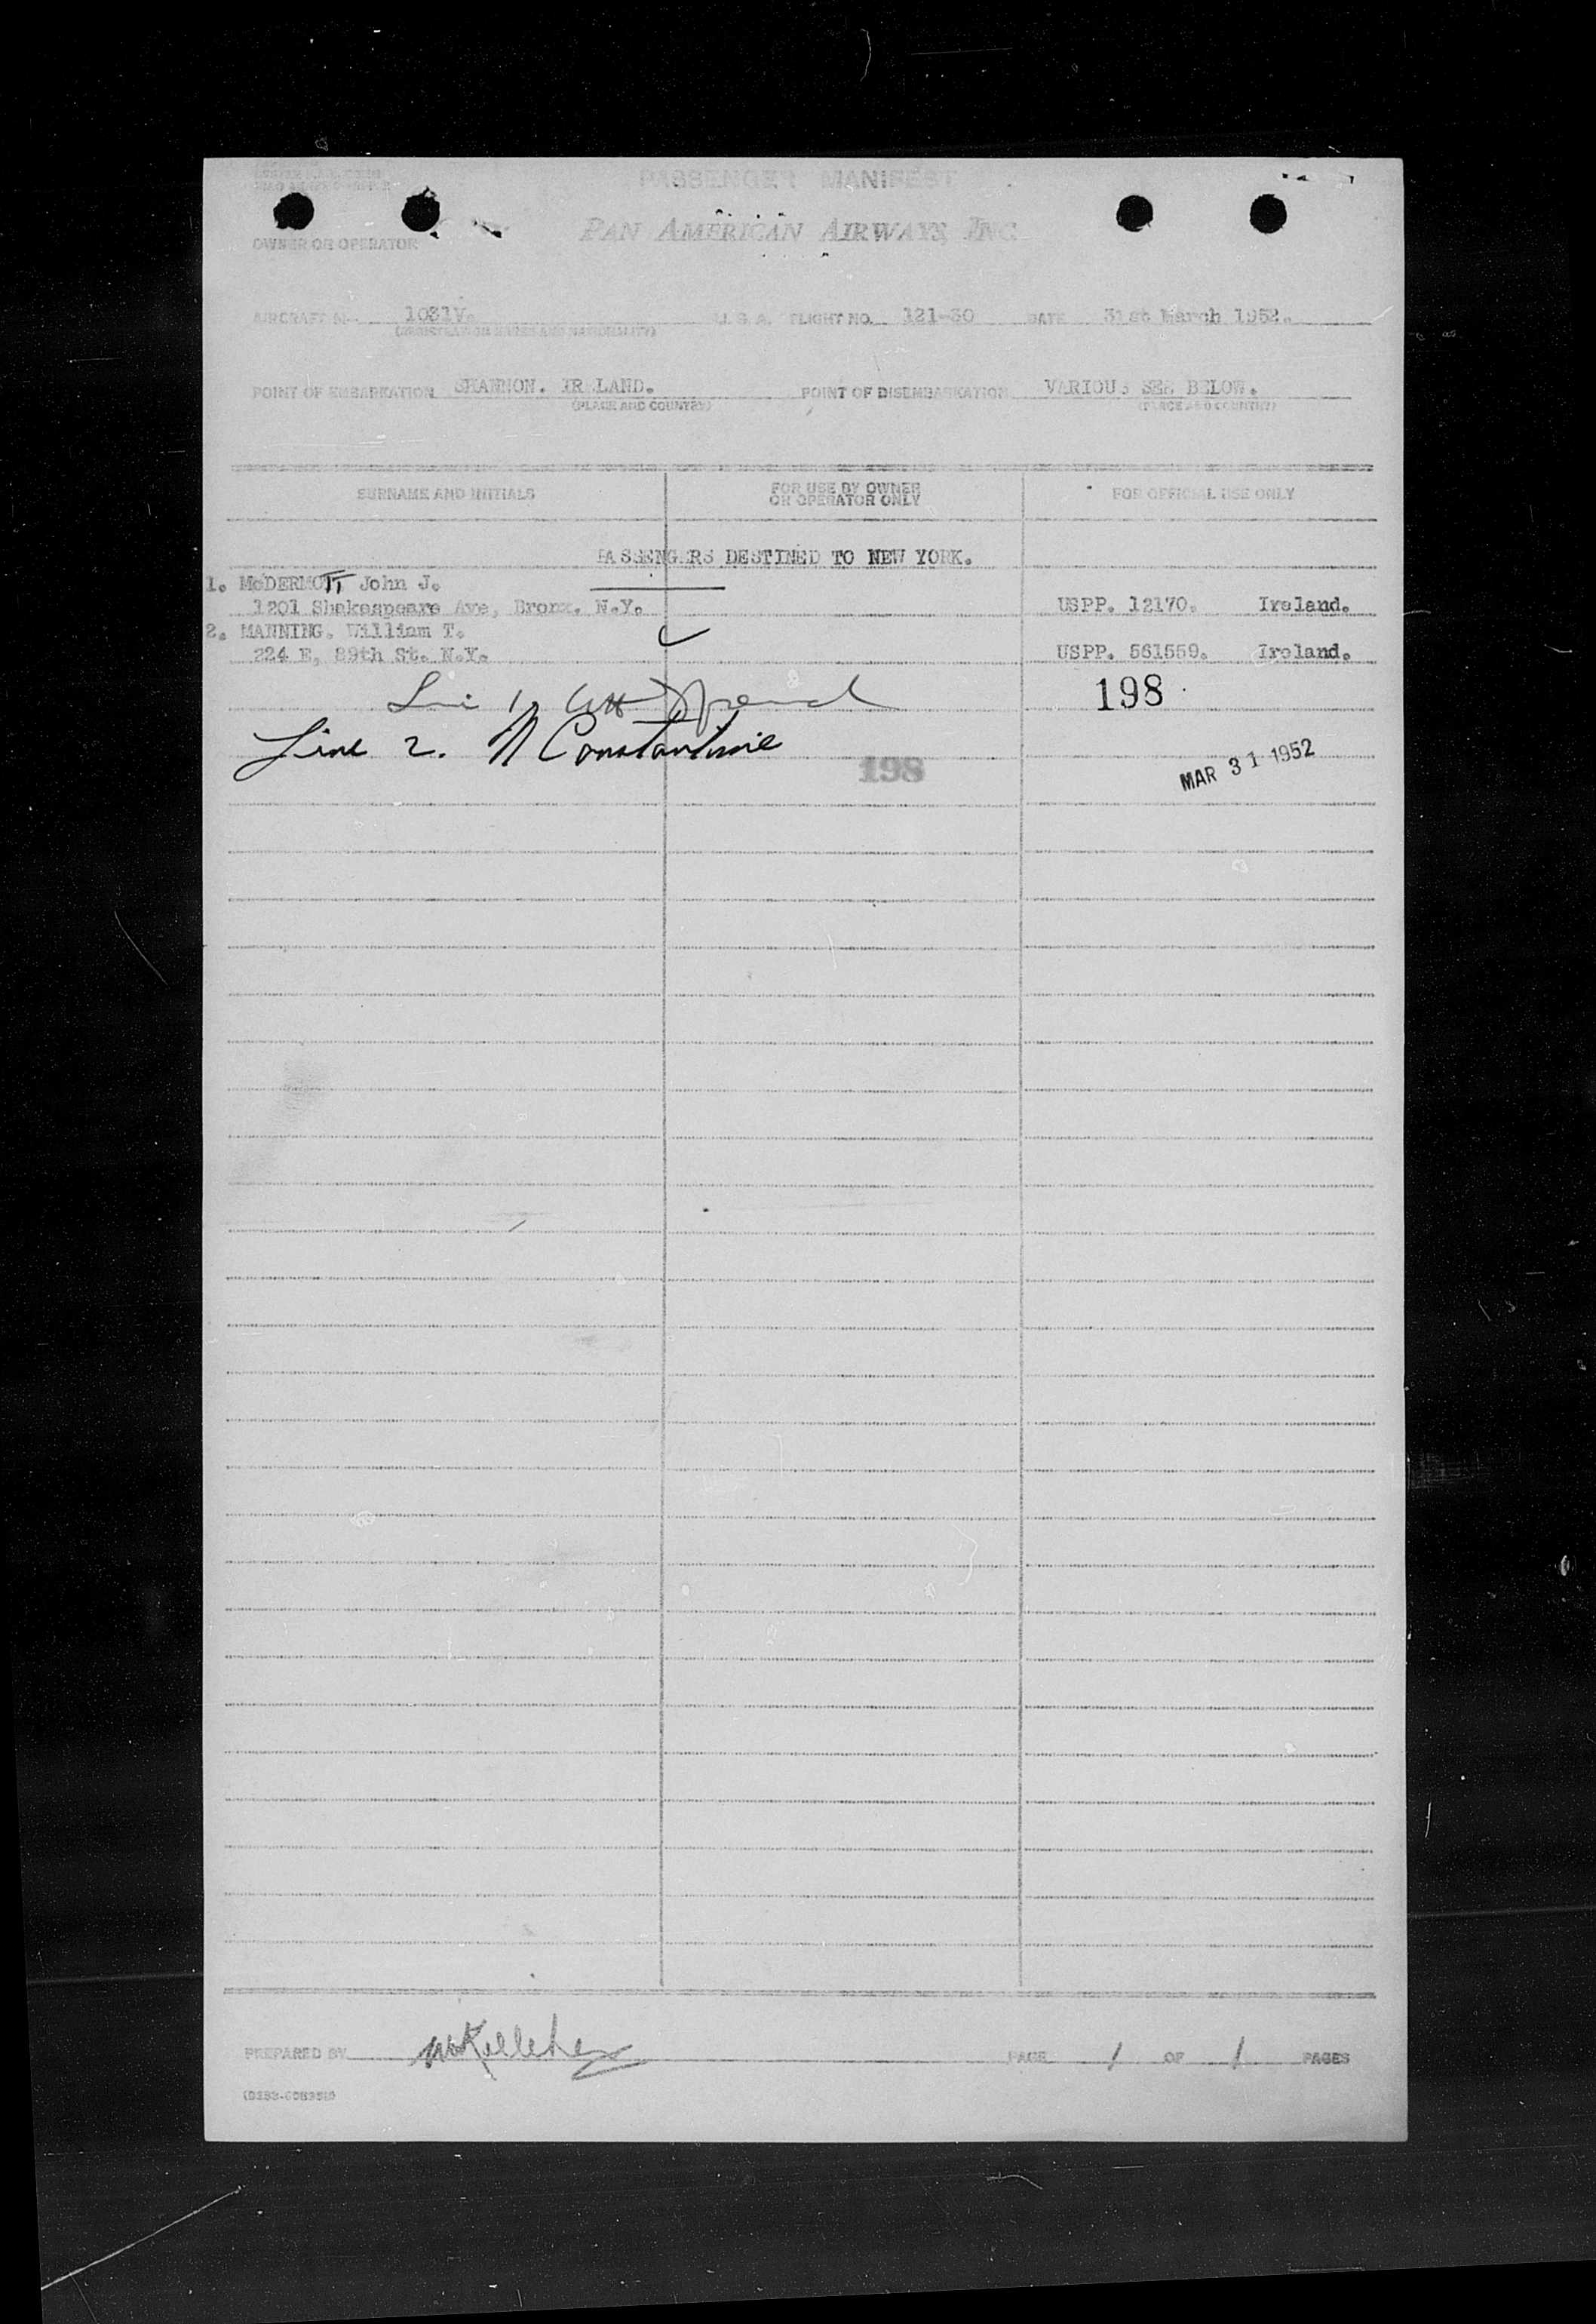 PASSENGER MANIFEST
OWNER OR OPERATOR
PAN AMERICAN AIRWAYS, INC
AIRCRAFT No. 1031V. U. S. A. FLIGHT NO. 121-30 DATE 31st March 1952.
(REGISTRATION MARKS AND NATIONALITY)
POINT OF EMBARKATION SHANNON. IR LAND. POINT OF DISEMBARKATION VARIOUS SEE BELOW.
(PLACE AND COUNTRY) (PLACE AND COUNTRY)
SURNAME AND INITIALS FOR USE BY OWNER OR OPERATOR ONLY FOR OFFICIAL USE ONLY
PASSENGERS DESTINED TO NEW YORK.
1. McDERMOTT John J.
1201 Shakespeare Ave, Bronx. N.Y. USPP. 12170. Ireland.
2. MANNING. William T.
224 E, 89th St. N.Y. USPP. 561559. Ireland.
198
Line 2. N Constantine
198
MAR 31 1952
PREPARED BY McKelleher PAGE 1 OF 1 PAGES